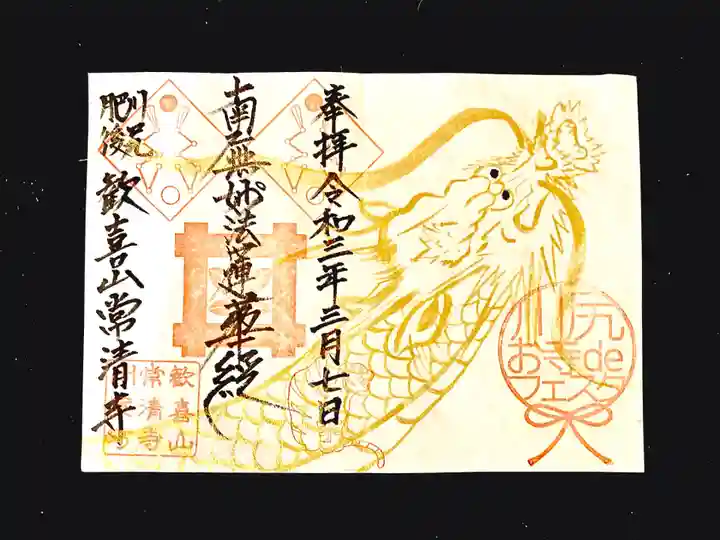 奉拝令和三年三月七日
南無妙法蓮華経
肥後川尻
歓喜山常清寺
歓喜山
常清寺
川尻
おてら de
フェスタ